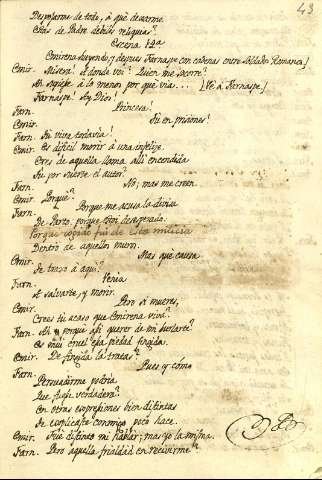 43
Despojarme de todo, à què dexarme
Esas de Padre debiles reliquias?
Escena 12ª
Emirena huyendo, y despues Farnaspe con cadenas entre Soldados Romanos.
Emir. Misera! à donde voi? Quien me socorre?
Ah supiese à lo menos por què via... (Vè à Farnaspe.)
Farnaspe! Ay Dios!
Farn. Princesa!
Emir. Tu en prisiones!
Farn. Tu vives todavia!
Emir. Es dificil morir à una infelize.
Eres de aquella llama alli encendida
Tu por suerte el autor?
Farn. No; mas me creen.
Emir. Porquè?
Farn. Porque me acusa la divisa
De Parto, porque tan desesperado.
Porque cogido fui de esta milicia
Dentro de aquellos muros.
Emir. Mas que causa
Te traxo à aqui?
Farn. Venia
A salvarte, y morir.
Emir. Pero si mueres,
Crees tu acaso que Emirena viva?
Farn. Ah porquè asi querer de mi burlarte?
Es mui cruel esa piedad fingida.
Emir. De fingida la tratas?
Farn. Pues y còmo
Persuadirme podria
Que fuese verdadera?
En otras expresiones bien distintas
Te explicaste conmigo poco hace.
Emir. Fuè distinto mi hablar; mas yo la misma.
Farn. Pero aquella frialdad en recivirme?